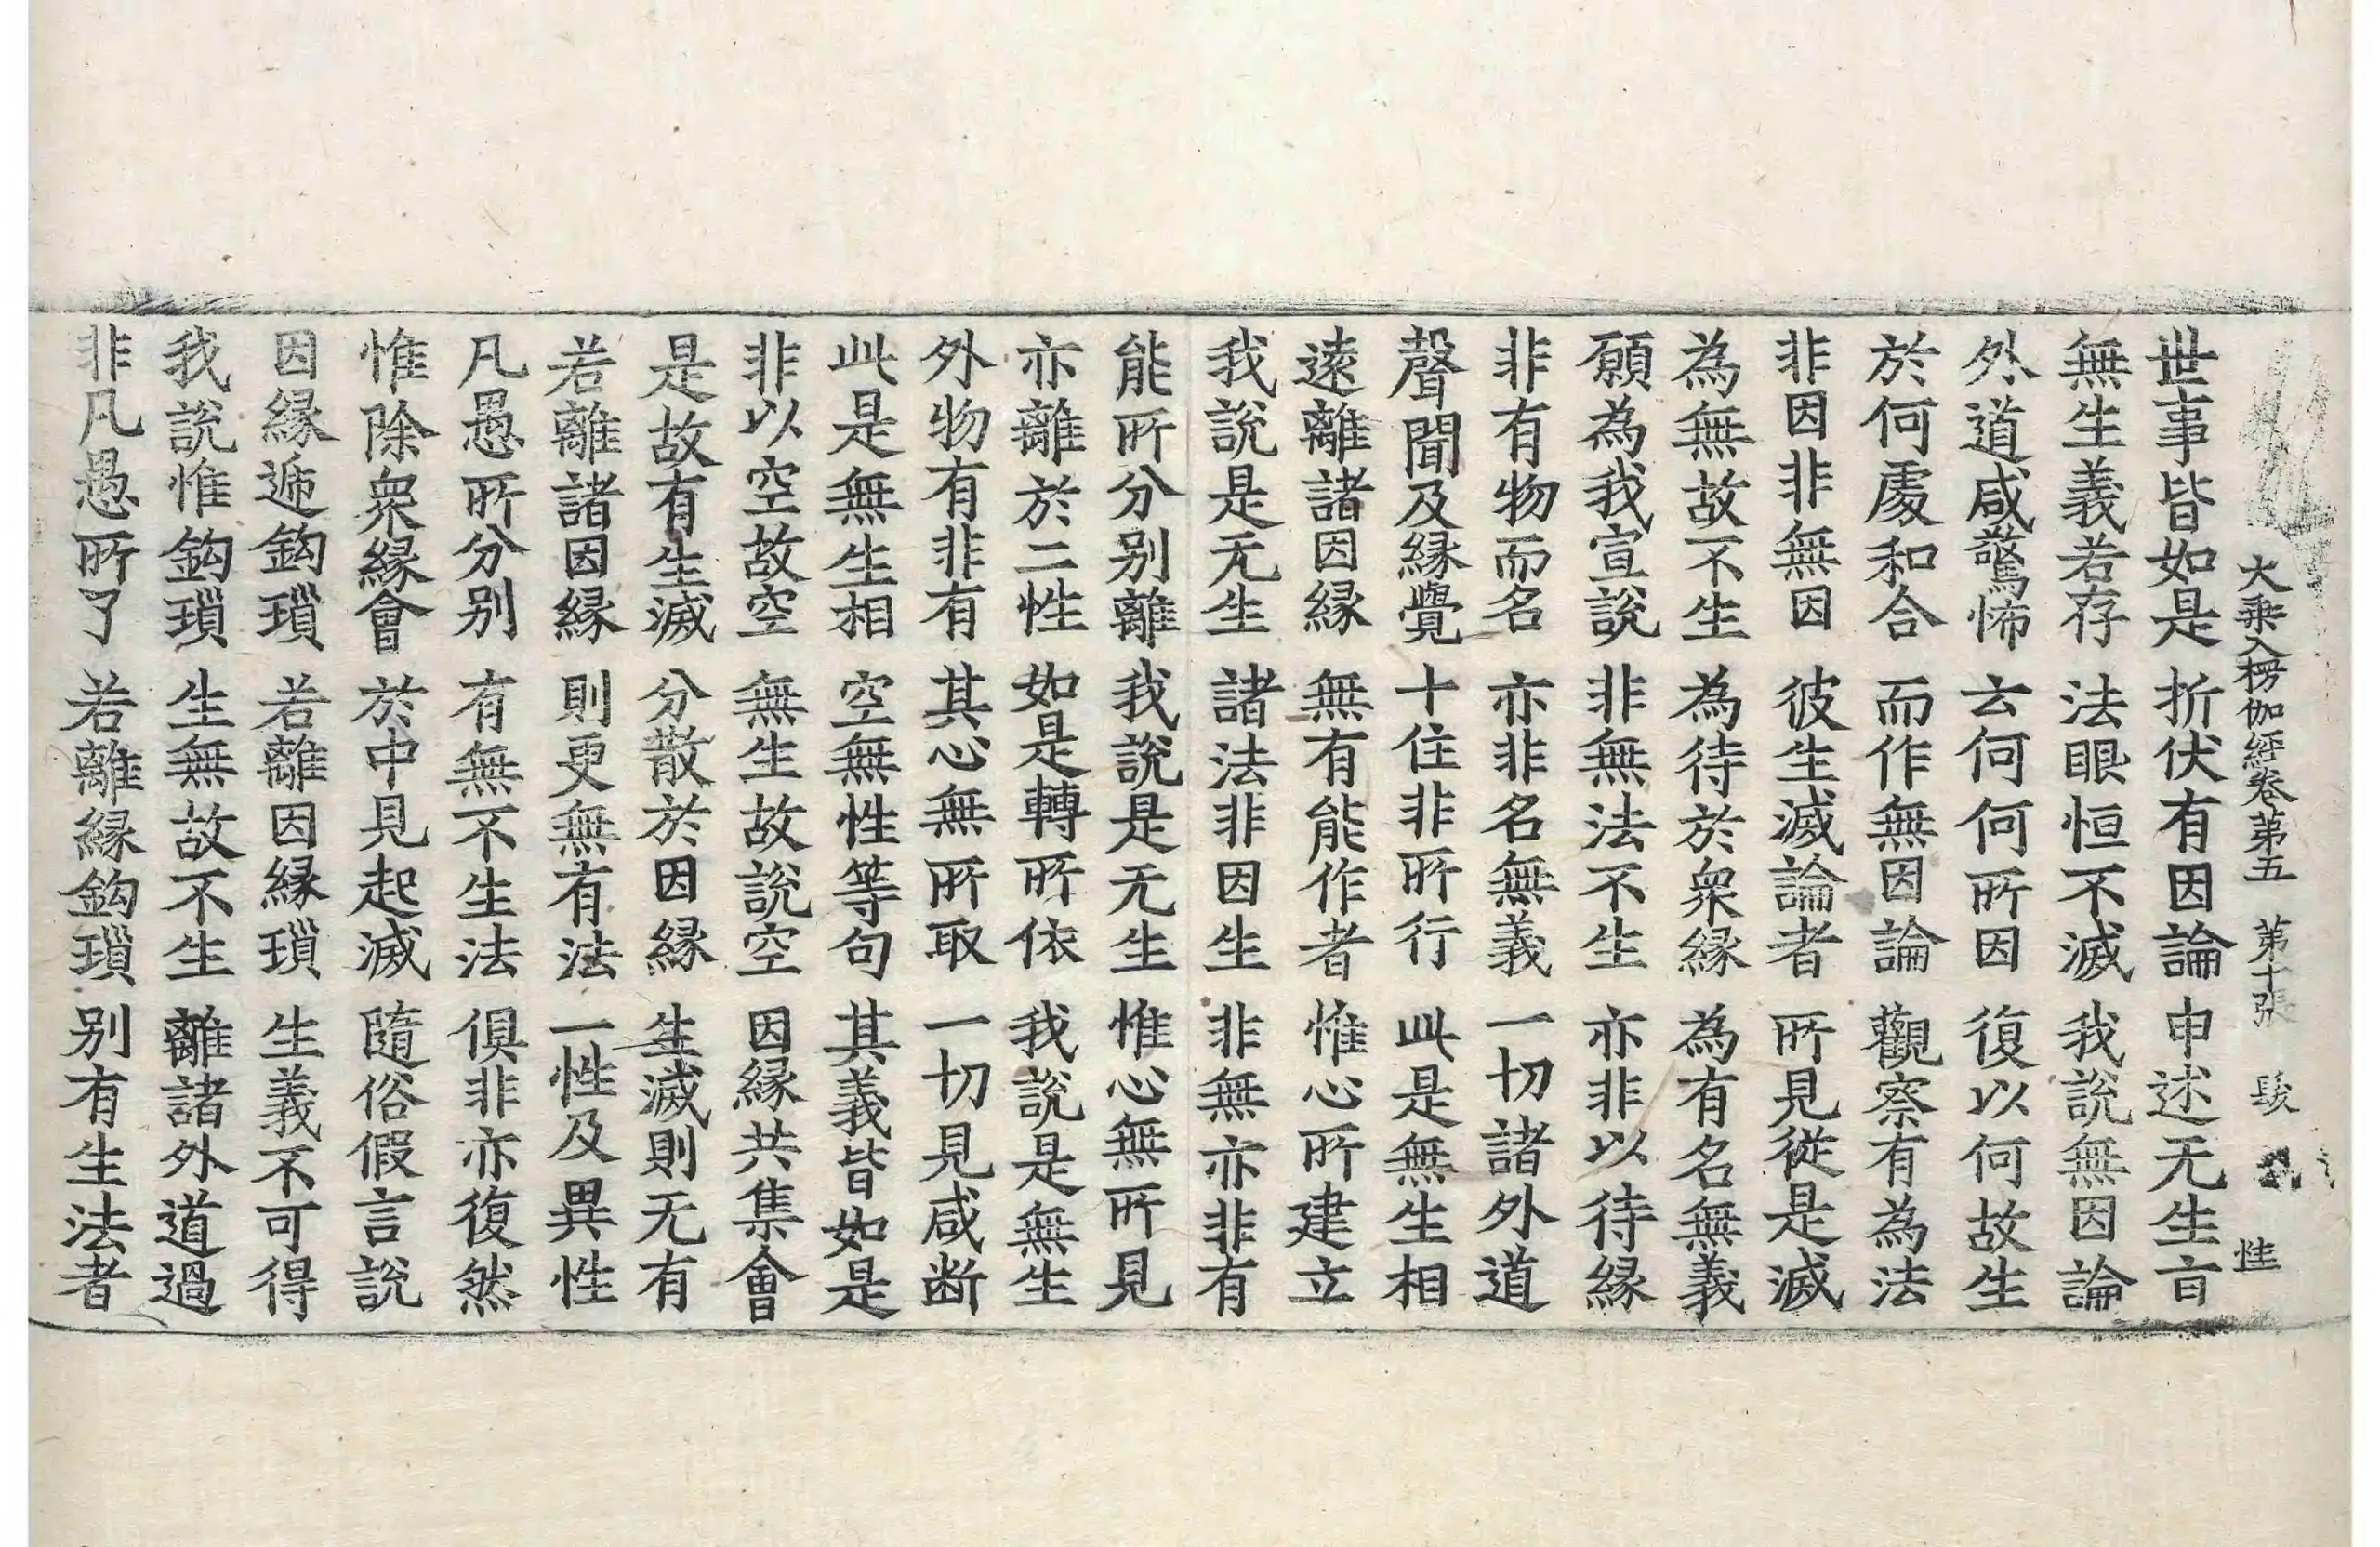 大乘入楞伽經卷第五 第十張 髮
世事皆如是 折伏有因論 申述无生㫖
無生義若存 法眼恒不滅 我說無因論
外道咸驚怖 云何何所因 復以何故生
於何處和合 而作無因論 觀察有為法
非因非無因 彼生滅論者 所見從是滅
為無故不生 為待於衆緣 為有名無義
願為我宣說 非無法不生 亦非以待緣
非有物而名 亦非名無義 一切諸外道
聲聞及緣覺 十住非所行 此是無生相
遠離諸因緣 無有能作者 惟心所建立
我說是无生 諸法非因生 非無亦非有
能所分别離 我說是无生 惟心無所見
亦離於二性 如是轉所依 我說是無生
外物有非有 其心無所取 一切見咸断
此是無生相 空無性等句 其義皆如是
非以空故空 無生故說空 因緣共集會
是故有生滅 分散於因緣 生滅則无有
若離諸因緣 則更無有法 一性及異性
凡愚所分别 有無不生法 俱非亦復然
惟除衆緣會 於中見起滅 隨俗假言說
因緣遞鈎瑣 若離因緣瑣 生義不可得
我說惟鈎瑣 生無故不生 離諸外道過
非凡愚所了 若離緣鈎瑣 别有生法者